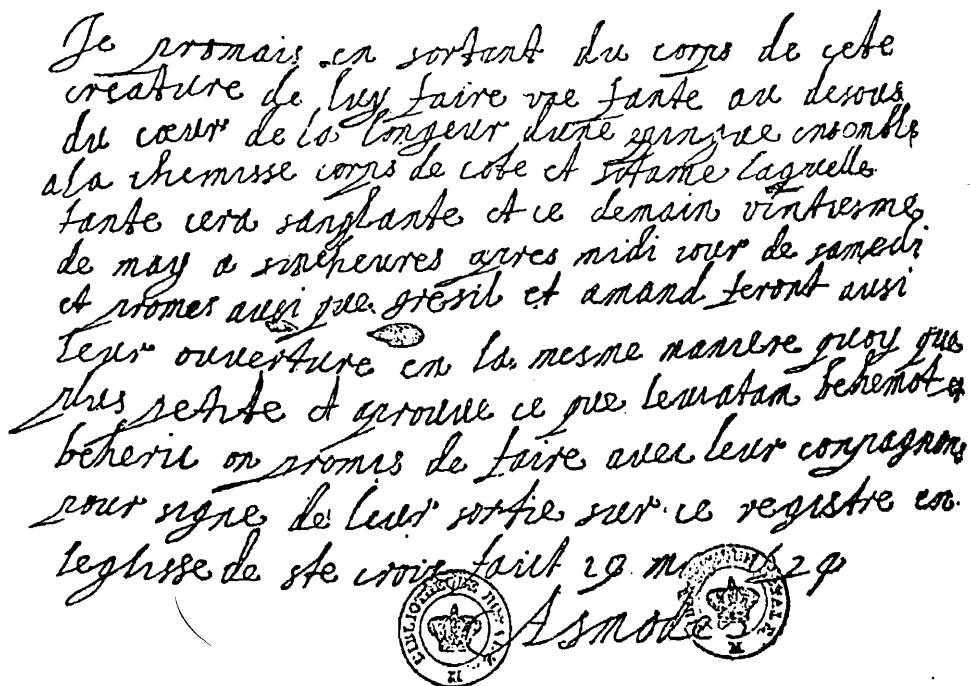 Je promais en sortant du corps de cete
creature de luy faire vne fante au desous
du cœur de la longeur dune pinque ensemble
a la chemisse corps de cote et sotame laquelle
fante cera sanglante et ce demain vintiesme
de may a sincheures apres midi iour de samedi
et promes ausi que gresil et amand feront ausi
leur ouverture en la mesme maniere quoy que
plus petite et aprouue ce que leuiatam behemot et
beherie on promis de faire avec leur conpagnons
pour signe de leur sortie sur ce registre en
leglisse de ste croix faict 19 29
Asmodee
BIBLIOTHEQUE